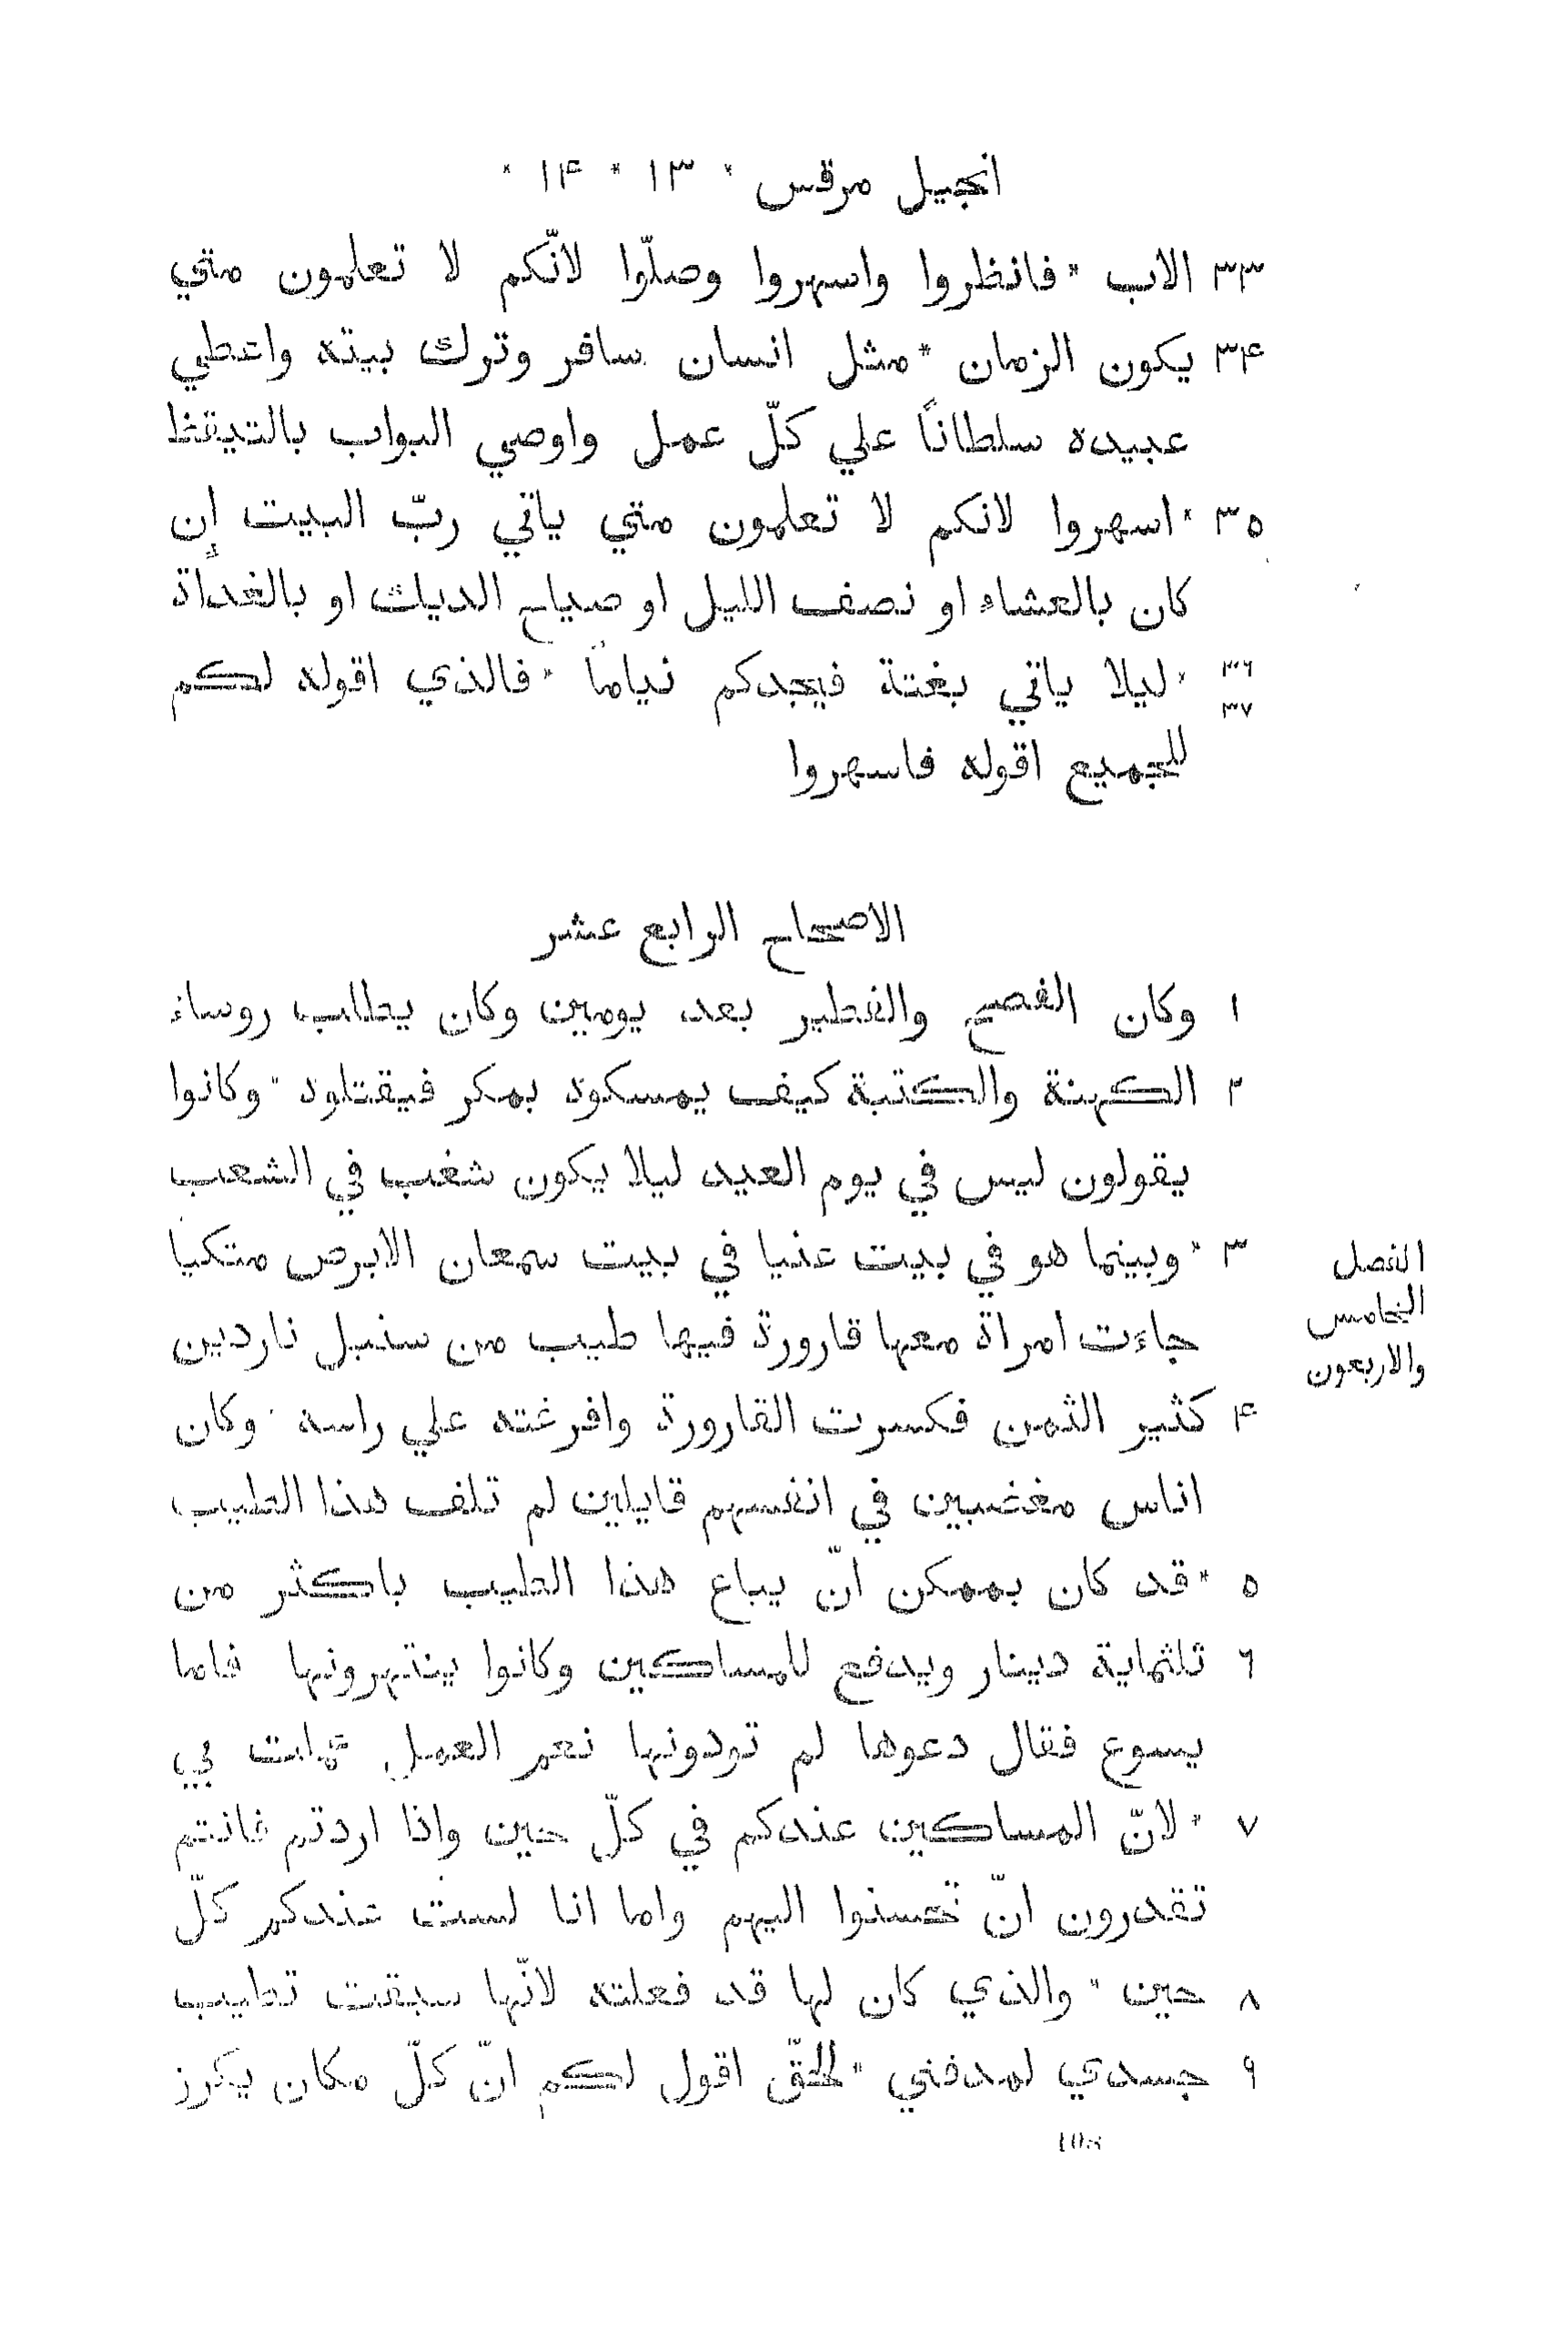 انجيل مرقس * ١٣ * ١۴ *
٣٣ الاب * فانظروا واسهروا وصلّوا لانّكم لا تعلمون متي
٣۴ يكون الزمان * مثل انسان سافر وترك بيته واعطي
عبيده سلطاناً علي كلّ عمل واوصي البواب بالتيقظ
٣٥ * اسهروا لانكم لا تعلمون متي ياتي ربّ البيت إن
كان بالعشاء او نصف الليل او صياح الديك او بالغداة
٣٦ * ليلا ياتي بغتة فيجدكم نياماً * فالذي اقوله لكم
٣٧
للجميع اقوله فاسهروا
الاصحاح الرابع عشر
١ وكان الفصح والفطير بعد يومين وكان يطلب روساء
٢ الكهنة والكتبة كيف يمسكوه بمكر فيقتلوه * وكانوا
يقولون ليس في يوم العيد ليلا يكون شغب في الشعب
٣ * وبينما هو في بيت عنيا في بيت سمعان الابرص متكيا
جاءت امراة معها قارورة فيها طيب من سنبل ناردين
۴ كثير الثمن فكسرت القارورة وافرغته علي راسه * وكان
اناس مغضبين في انفسهم قايلين لم تلف هذا الطيب
٥ * قد كان بممكن انّ يباع هذا الطيب باكثر من
٦ ثلثماية دينار ويدفع للمساكين وكانوا ينتهرونها فاما
يسوع فقال دعوها لم تودونها نعم العمل عملت بي
٧ * لانّ المساكين عندكم في كلّ حين واذا اردتم فانتم
تقدرون انّ تحسنوا اليهم واما انا لست عندكم كلّ
٨ حين * والذي كان لها قد فعلته لانّها سبقت تطيب
٩ جسدي لمدفني * الحقّ اقول لكم انّ كلّ مكان يكرز
الفصل
الخامس
والاربعون
108